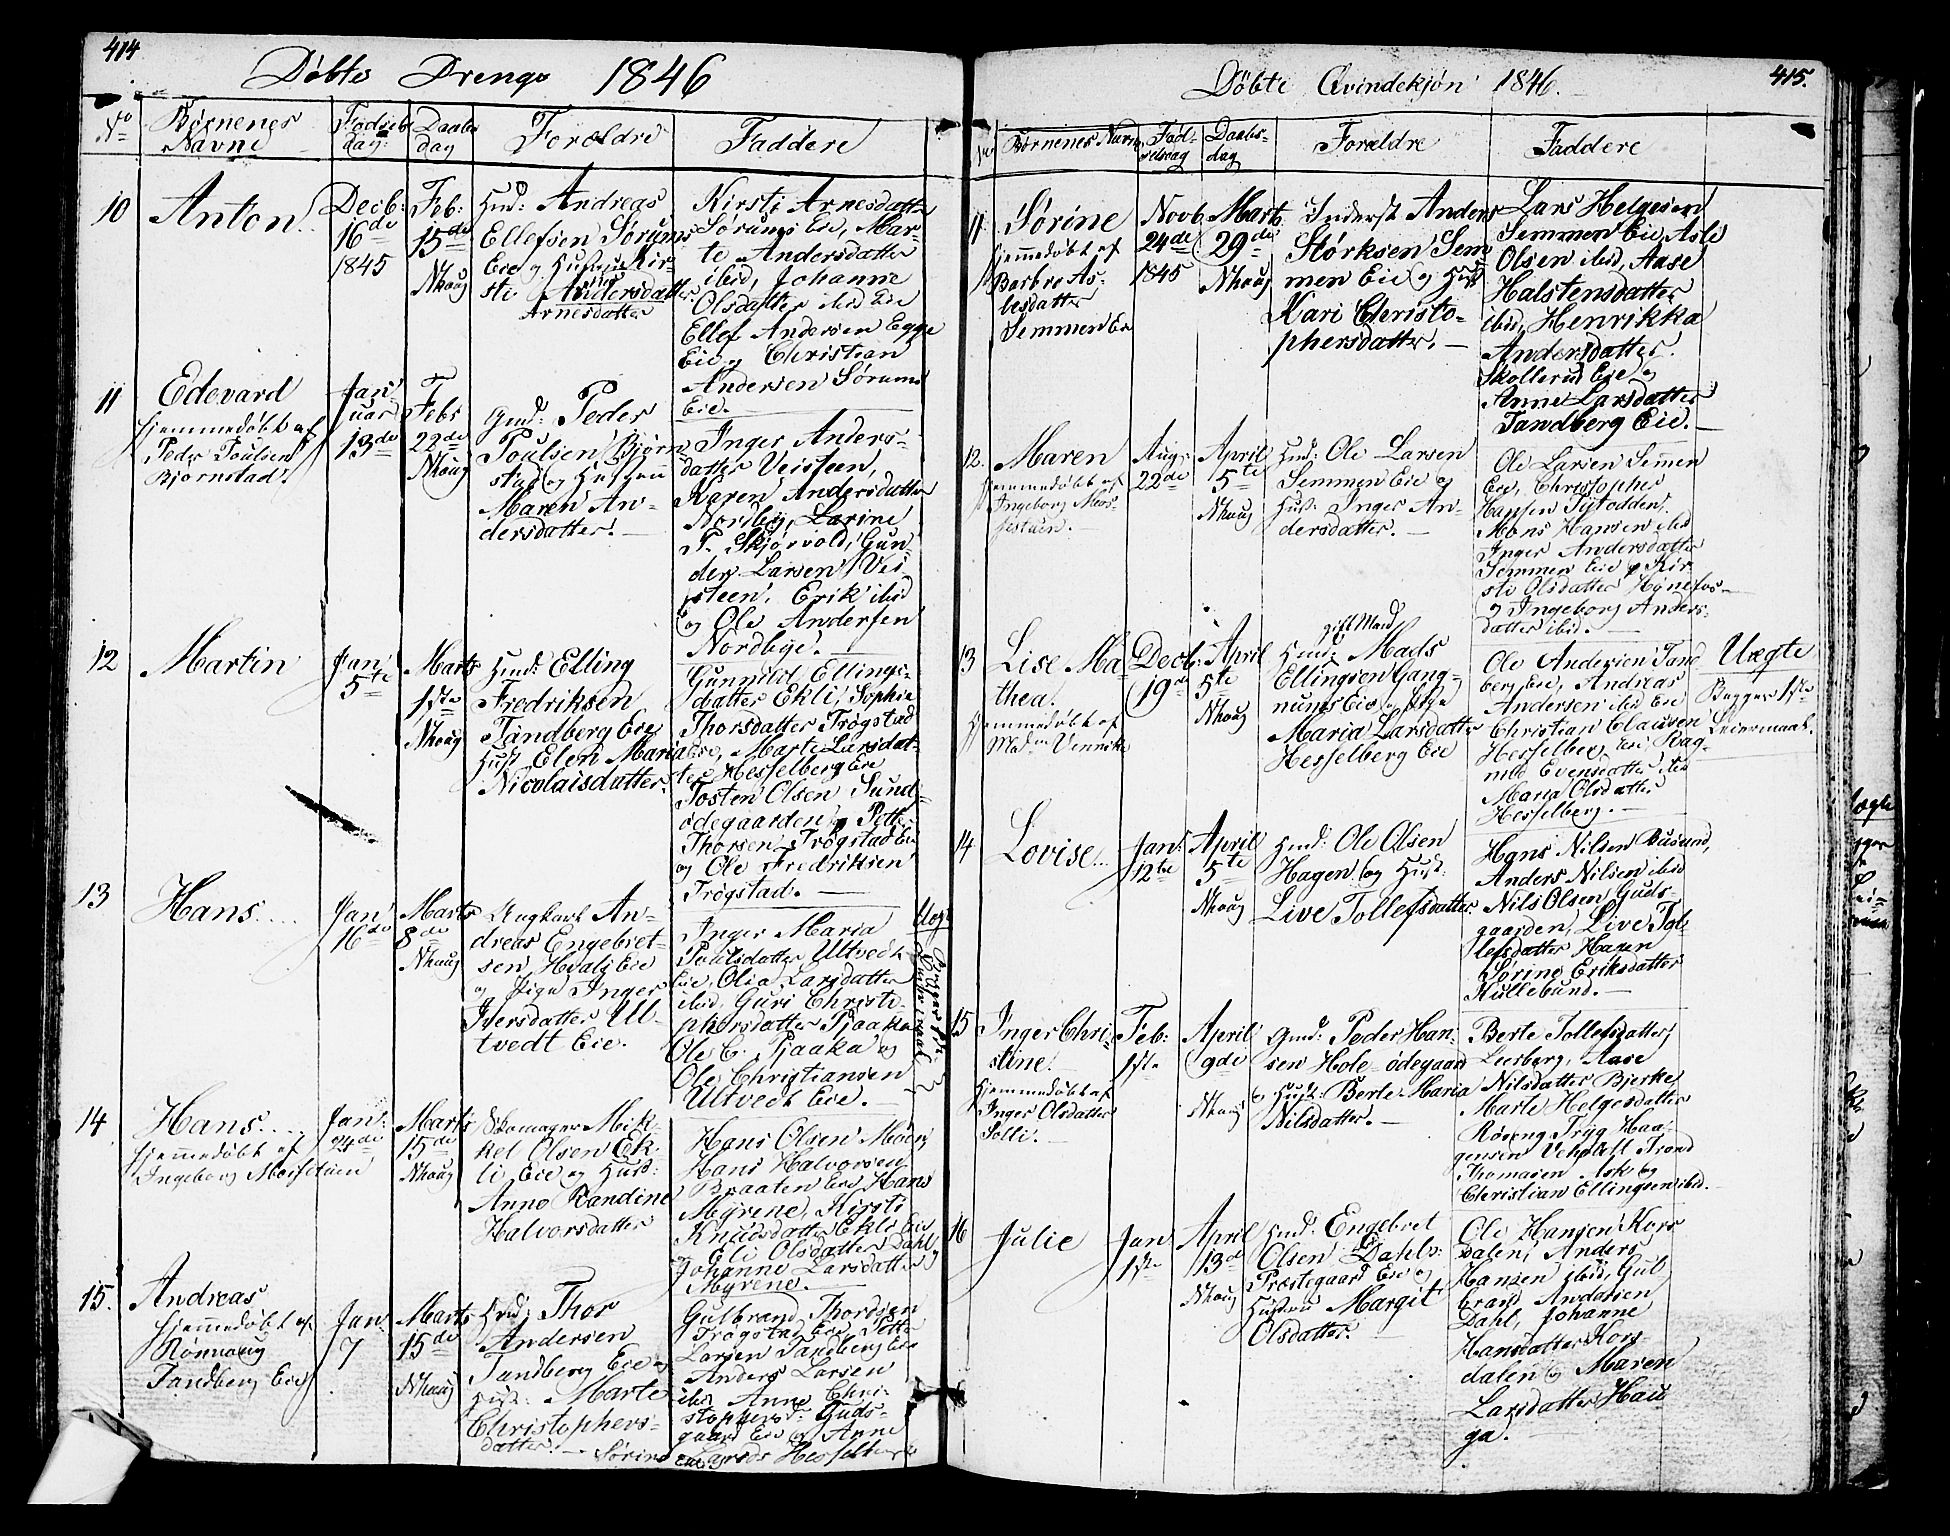 414
Döbte Drenge 1846
No
Børnenes Navne
Fødselsdag
Daabsdag
Forældre
Faddere
10
Anton
Decb:
16de
1845
Feb:
15de
Nhoug
Hmd: Andreas
Ellefsen Sørums
Eie og Hustrue Kir-
sti Andersdatter
Arnesdatter
Kirsti Arnesdatter
Sørums Eie, Mar-
te Andersdatter
ibid, Johanne
Olsdatter ibid Eie
Ellef Andersen Egge
Eie og Christian
Andersen Sørums
Eie.
11
Edevard
hjemmedöbt af
Peder Poulsen
Bjørnstad.
Jan-
uar
13de
Feb:
22de
Nhoug
Gmd: Peder
Poulsen Bjørn
stad og Hustrue
Maren An-
dersdatter.
Inger Anders-
datter Veisteen,
Karen Andersdatter
Nordby, Larine
P. Skjørvold, Gun-
der Larsen Vei-
steen, Erik ibid
og Ole Andersen
Nordbye.
12
Martin
Jan:
5te
Marts
1ste
Nhoug
Hmd: Elling
Fredriksen
Tandberg Eie
Hust: Elen Maria
Nicolaisdatter.
Gunnild Ellings-
datter Ekli, Sophia
Thorsdatter Trøgstad
Eie, Marte Larsdat-
ter Hesselberg Eie
Tosten Olsen Sund-
ødegaarden og Petter
Thorsen Trøgstad Eie
og Ole Fredriksen
Trøgstad.
13
Hans
Jan:
16de
Marts
8de
Nhoug
Ungkarl An-
dreas Engebret-
sen, Hvals Eie
og Pige Inger
Iversdatter Ul-
tvedt Eie.
Inger Maria
Poulsdatter Ultvedt
Eie, Olia Larsdatter
ibid, Guri Christo-
phersdatter Pjaaka
Ole C. Pjaaka og
Ole Christiansen
Ultvedt Eie.
Uægte
Begges 1ste
Leiermaal
14
Hans
hjemmedöbt af
Ingeborg Moesstuen
Jan:
24de
Marts
15de
Nhoug
Skomager Mik-
kel Olsen Ek-
li Eie og Hust:
Anne Randine
Halvorsdatter
Hans Olsen Moen,
Hans Halvorsen
Braaten Eie Hans
Myrene, Kirsti
Knudsdatter Ekli Eie
og Eli Olsdatter Dahl
Johanne Larsdatter
Myrene.
15.
Andreas
hjemmedöbt af
Rønnaug
Tandberg Eie
Jan:
7
Marts
15de
Nhoug
Hmd: Thor
Andersen
Tandberg Eie og
Hust: Marte
Christophers-
datter.
Gulbrand Thordsen
Trøgstad Eie, Petter
Larsen Tandberg Eie
Anders Larsen
ibid Anne Chri-
stophersd: Guds-
gaard Eie og Anne
Sørine Larsds Hesselberg
415.
Döbte Qvindekjön 1846.
No
Børnenes Navne
Fød-
selsdag
Daabs-
dag
Forældre
Faddere
11
Sørine
hjemmedöbt af
Barbro As-
lesdatter
Semmen Eie
Novb
24de
1845
Marts
29de
Nhoug
Inderst Anders
Størksen Sem
men Eie og Hust
Kari Christo-
phersdatter.
Lars Helgesen
Semmen Eie, Asle
Olsen ibid, Aase
Halstensdatter
ibid, Henrikka
Andersdatter
Skollerud Eie og
Anne Larsdatter
Tandberg Eie.
12.
Maren
hjemmedöbt af
Ingeborg Moes-
stuen.
Aug:
22de
April
5te
Nhoug
Hmd: Ole Larsen
Semmen Eie og
Hust: Inger An-
dersdatter.
Ole Larsen Semen
Eie, Christopher
Hansen Tytodden,
Mons Hansen ibid
Inger Andersdatter
Semmen Eie, Kir-
sti Olsdatter Hønefos
og Ingeborg Anders-
datter ibid.
13
Lise Ma-
thea.
Hjemmedöbt af
Mad: Vennike
Decb:
19de
April
5te
Nhoug
gift Mand
Hmd: Mads
Ellingsen Gang-
nums Eie og Pige
Maria Larsdatter
Hesselberg Eie
Ole Andersen Tand
berg Eie, Andreas
Andersen ibid Eie
Christian Clausen
Hesselberg Eie Rag-
nild Evensdatter
Maria Olsdatter
Hesselberg.
Uægte
Begges 1ste
Leiermaal.
14
Lovise
Jan:
12te
April
5te
Nhoug
Hmd: Ole Olsen
Hagen og Hust:
Live Tollefsdatter.
Hans Nilsen Busund,
Anders Nilsen ibid
Nils Olsen Guds-
gaarden, Live Tol-
lefsdatter Hagen
Sørine Eriksdatter
Hullebund.
15
Inger Chri-
stine.
Hjemmedöbt af
Inger Olsdatter
Solli.
Feb:
1ste
April
9de
Nhoug
Gmd: Peder Han-
sen Hole-ødegaard
og Hust: Berte Maria
Nilsdatter.
Berte Tollefsdatter
Leesberg, Aase
Nilsdatter Bjerke,
Marte Helgesdatter
Røseng, Tryg Haa-
gensen Trond
Thomasen Ask og
Christian Ellingsen ibid.
16
Julie
Jan
1ste
April
13de
Nhoug
Hmd: Engebret
Olsen Dahls
Præstegaard Eie og
Hustrue Margit
Olsdatter.
Ole Hansen Kors
dalen, Anders
Hansen ibid, Gul
brand Andersen
Dahl, Johanne
Hansdatter Kors
dalen og Maren
Larsdatter Hau
ga.